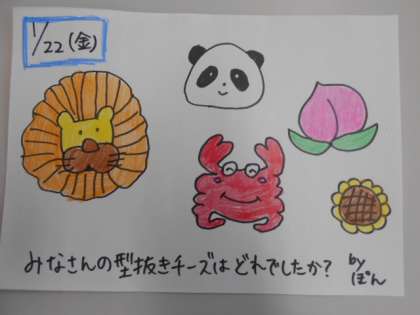 1/22(金)
みなさんの型抜きチーズはどれでしたか?
by
ぽん